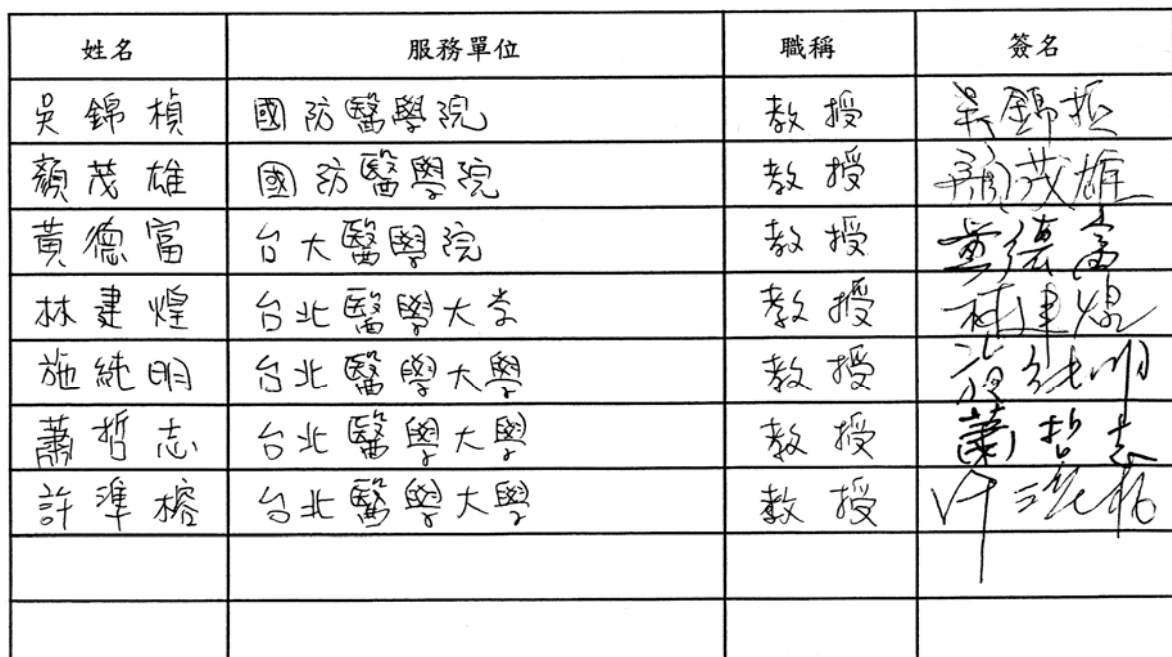 姓名 服務單位 職稱 簽名
吳錦楨 國防醫學院 教授 吳錦楨
顏茂雄 國防醫學院 教授 顏茂雄
黃德富 台大醫學院 教授 黃德富
林建煌 台北醫學大学 教授 林建煌
施純明 台北醫學大學 教授 施純明
蕭哲志 台北醫學大學 教授 蕭哲志
許準榕 台北醫學大學 教授 許準榕